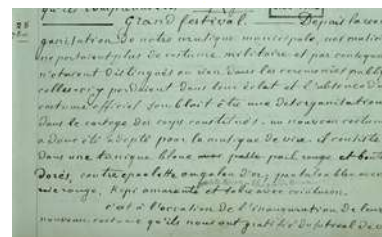 Grand festival. — Depuis la réor
ganisation de notre musique municipale, nos music
ne portaient plus de costume militaire et par conséquent
n'étaient distingués en rien dans les cérémonies publi
celles-ci y perdaient dans leur éclat et l'absence d
costume officiel semblait être une désorganisation
dans le cortège des corps constitués. un nouveau costume
a donc été adopté pour la musique de vire. il consiste
dans une tunique bleue avec passe poil rouge et bout
dorés, contre épaulette en galon d'or, pantalon bleu avec
raie rouge, Képi amarante et
c'est à l'occasion de l'inauguration de leur
nouveau costume qu'ils nous ont gratifié du festival de